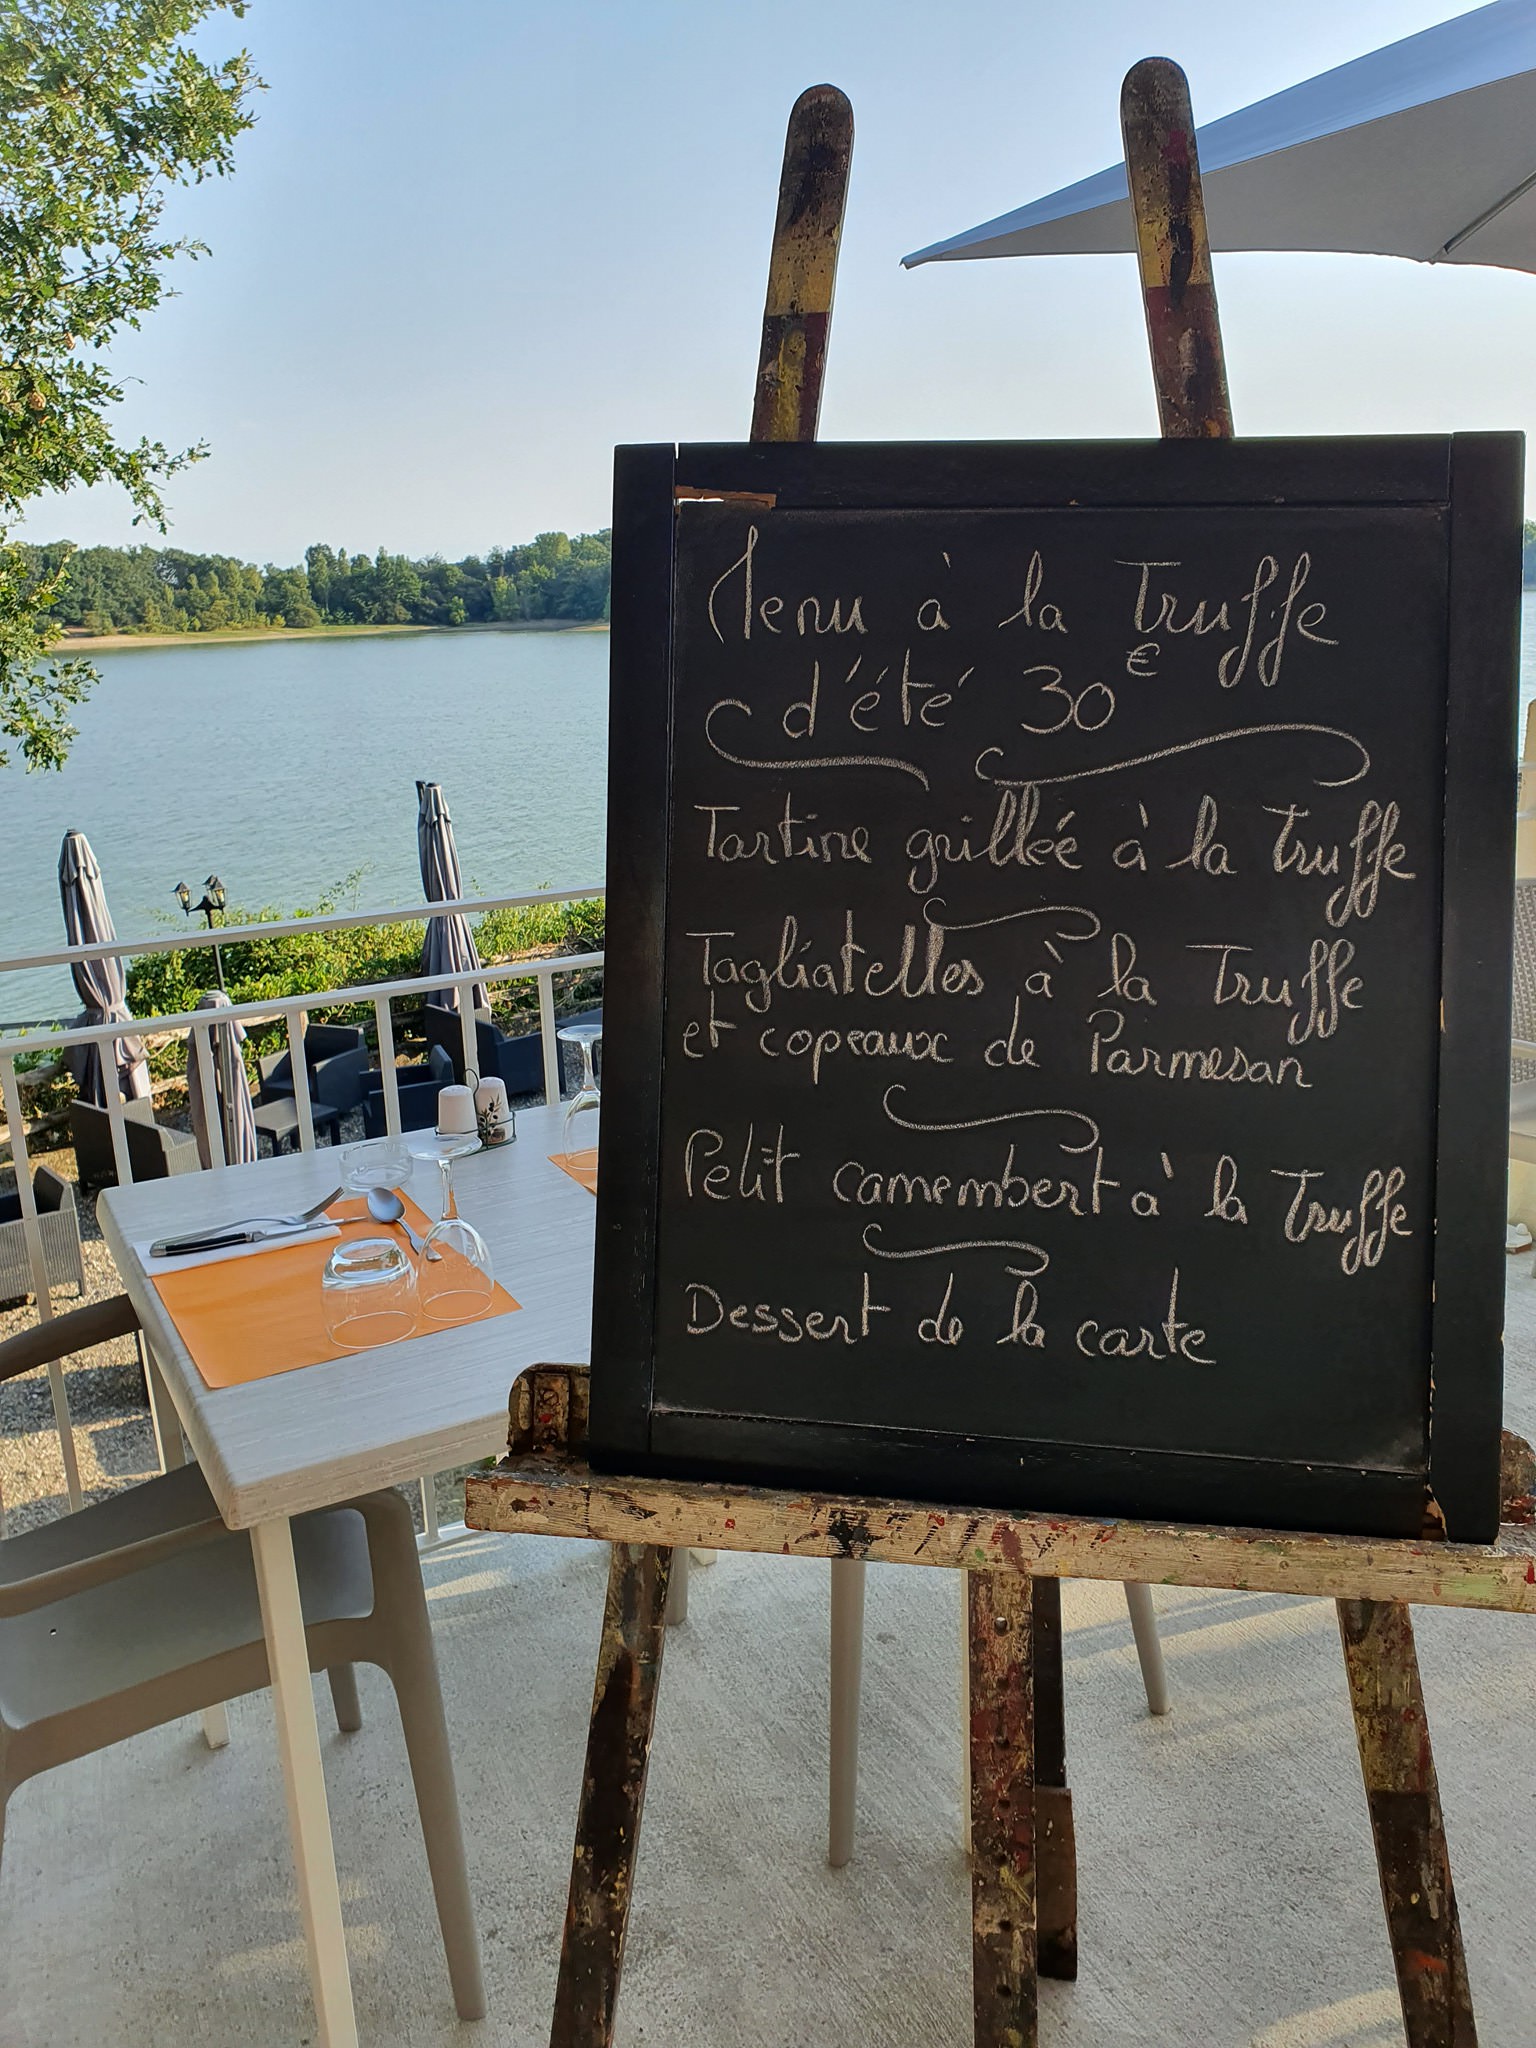 Menu à la Truffe
d'été 30€
Tartine grillée à la Truffe
Tagliatelles à la Truffe
et copeaux de Parmesan
Petit camembert à la Truffe
Dessert de la carte